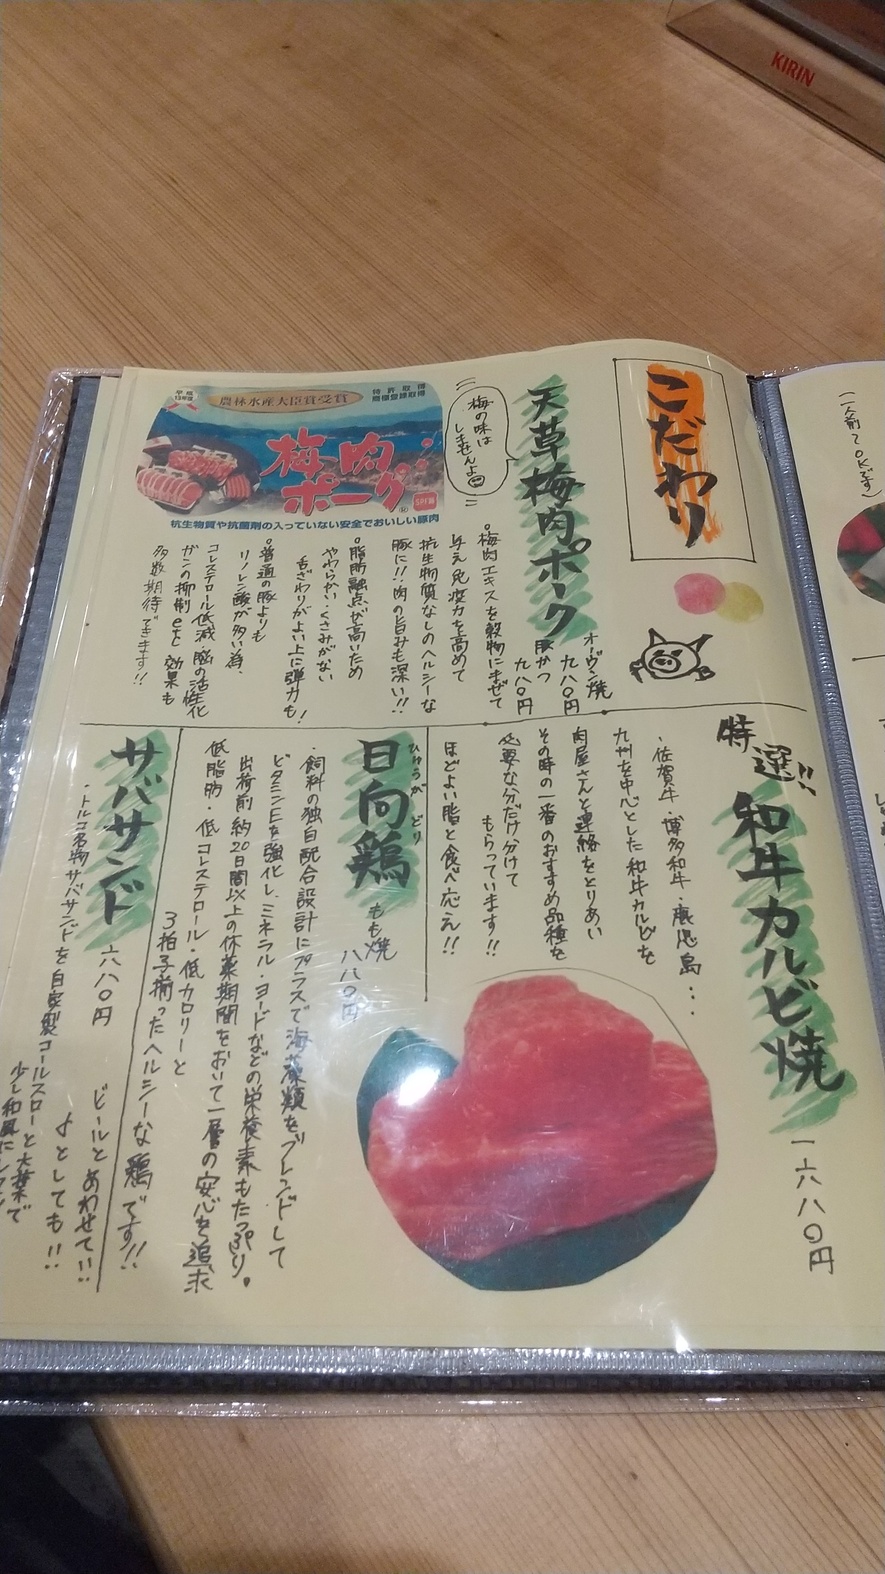 KIRIN
こだわり
天草梅肉ポーク
オーヴン焼
九八〇円
豚かつ
九八〇円
梅の味は
しませんよ
平成
13年度
農林水産大臣賞受賞
特許取得
商標登録取得
梅肉
ポーク
®
SPF豚
抗生物質や抗菌剤の入っていない安全でおいしい豚肉
。梅肉エキスを穀物にまぜて
与え免疫力を高めて
抗生物質なしのヘルシーな
豚に!!肉の旨みも深い!!
。脂肪融点が高いため
やわらかい・くさみがない
舌ざわりがよい上に弾力も!
。普通の豚よりも
リノレン酸が多い為、
コレステロール低減 脳の活性化
ガンの抑制etc 効果も
多数期待できます!!
特選!!
和牛カルビ焼
一六八〇円
・佐賀牛・博多和牛・鹿児島...
九州を中心とした和牛カルビを
肉屋さんと連絡をとりあい
その時の一番のおすすめ品種を
必要な分だけ分けて
もらっています!!
ほどよい脂と食べ応え!!
ひゅうがどり
日向鶏
もも焼
八八〇円
・飼料の独自配合設計にプラスで海藻類をブレンドして
ビタミンEを強化し、ミネラル・ヨードなどの栄養素もたっぷり。
出荷前約20日間以上の休薬期間をおいて一層の安心を追求
低脂肪・低コレステロール・低カロリーと
3拍子揃ったヘルシーな鶏です!!
サバサンド
六八〇円
・トルコ名物サバサンドを自家製コールスローと大葉で
少し和風に
ビールとあわせてい!!
♪としても!!
(一人前でOKです)